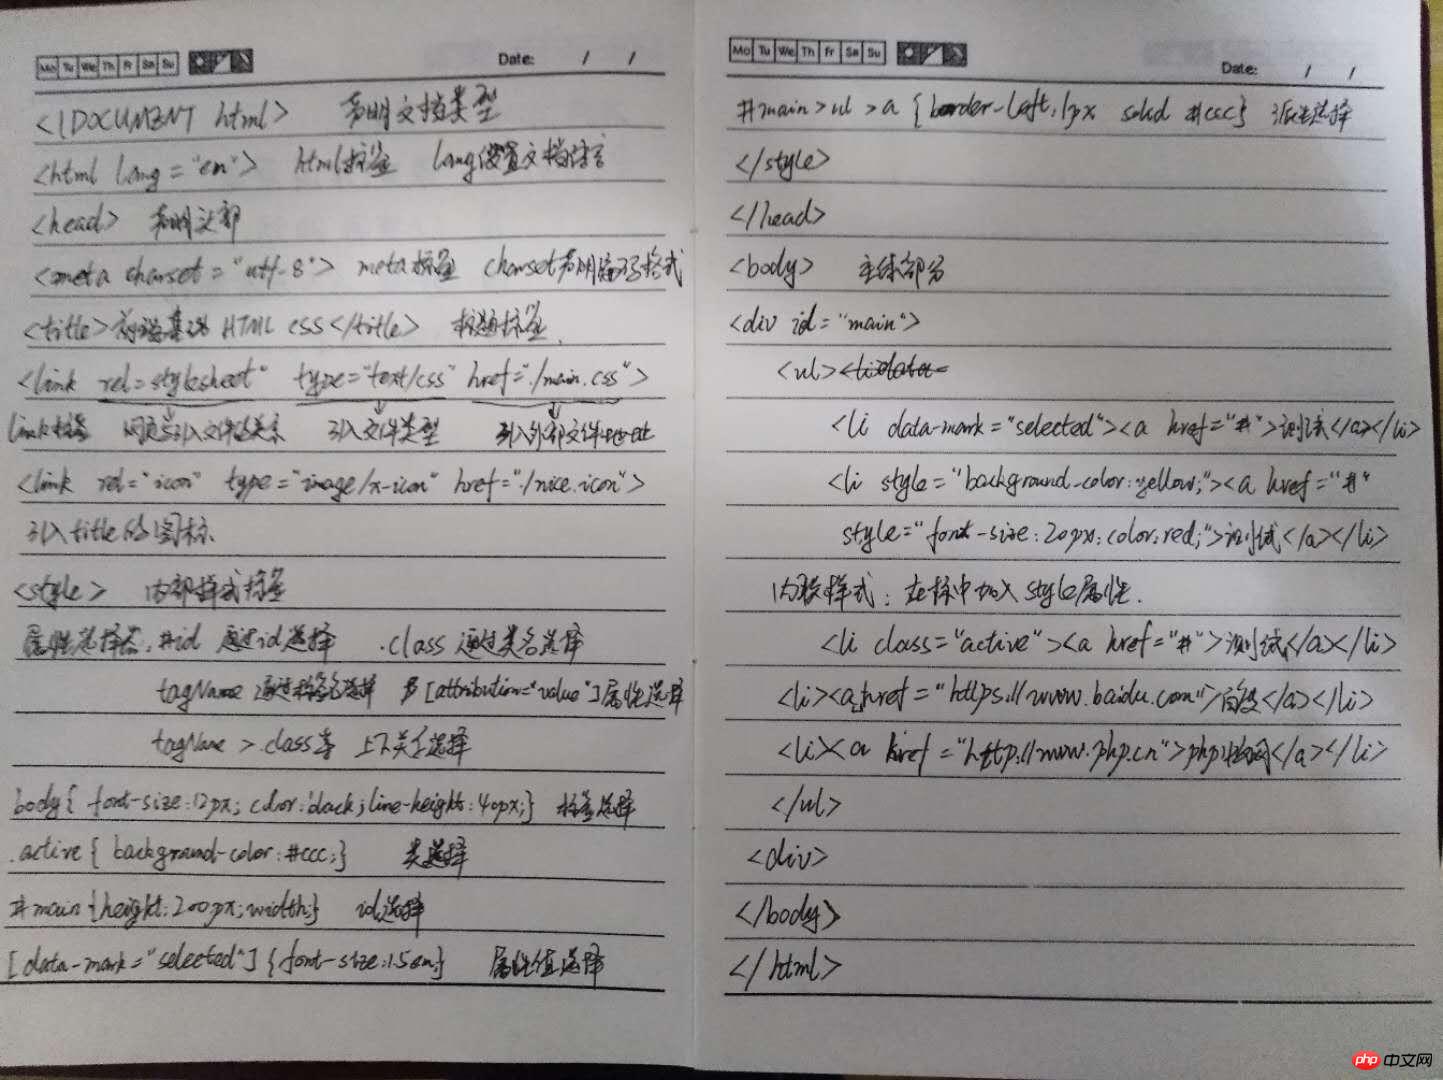 Mo Tu We Th Fr Sa Su Date: / /
<!DOCUMENT html> 声明文档类型
<html lang="en"> html标签 lang设置文档语言
<head> 声明头部
<meta charset="utf-8"> meta标签 charset声明编码格式
<title>前端基础 HTML css</title> 标题标签
<link rel=stylesheet" type="text/css" href="./main.css">
link标签 网页与引入文件的关系 引入文件类型 引入外部文件
<link rel="icon" type="image/x-icon" href="./nice.icon">
引入title的图标
<style> 内部样式标签
属性选择器,#id 通过id选择 .class 通过类名选择
tagName 通过标签名选择 [attribution="value"]属性选择
tagName > .class等 上下关系选择
body{ font-size:12px; color:black; line-height:40px;} 标签选择
.active{ background-color:#ccc;} 类选择
#main{height:200px;width;} id选择
[data-mark="selected"]{font-size:1.5em;} 属性值选择
Mo Tu We Th Fr Sa Su Date: / /
#main>ul>a{border-left:1px solid #ccc} 派生选择
</style>
</head>
<body> 主体部分
<div id="main">
<ul><li data-
<li data-mark="selected"><a href="#">测试</a></li>
<li style="background-color:yellow;"><a href="#"
style="font-size:20px;color:red;">测试</a></li>
内联样式:在标中加入style属性.
<li class="active"><a href="#">测试</a></li>
<li><a href="https://www.baidu.com">百度</a></li>
<li><a href="http://www.php.cn">php中文网</a></li>
</ul>
<div>
</body>
</html>
php 中文网